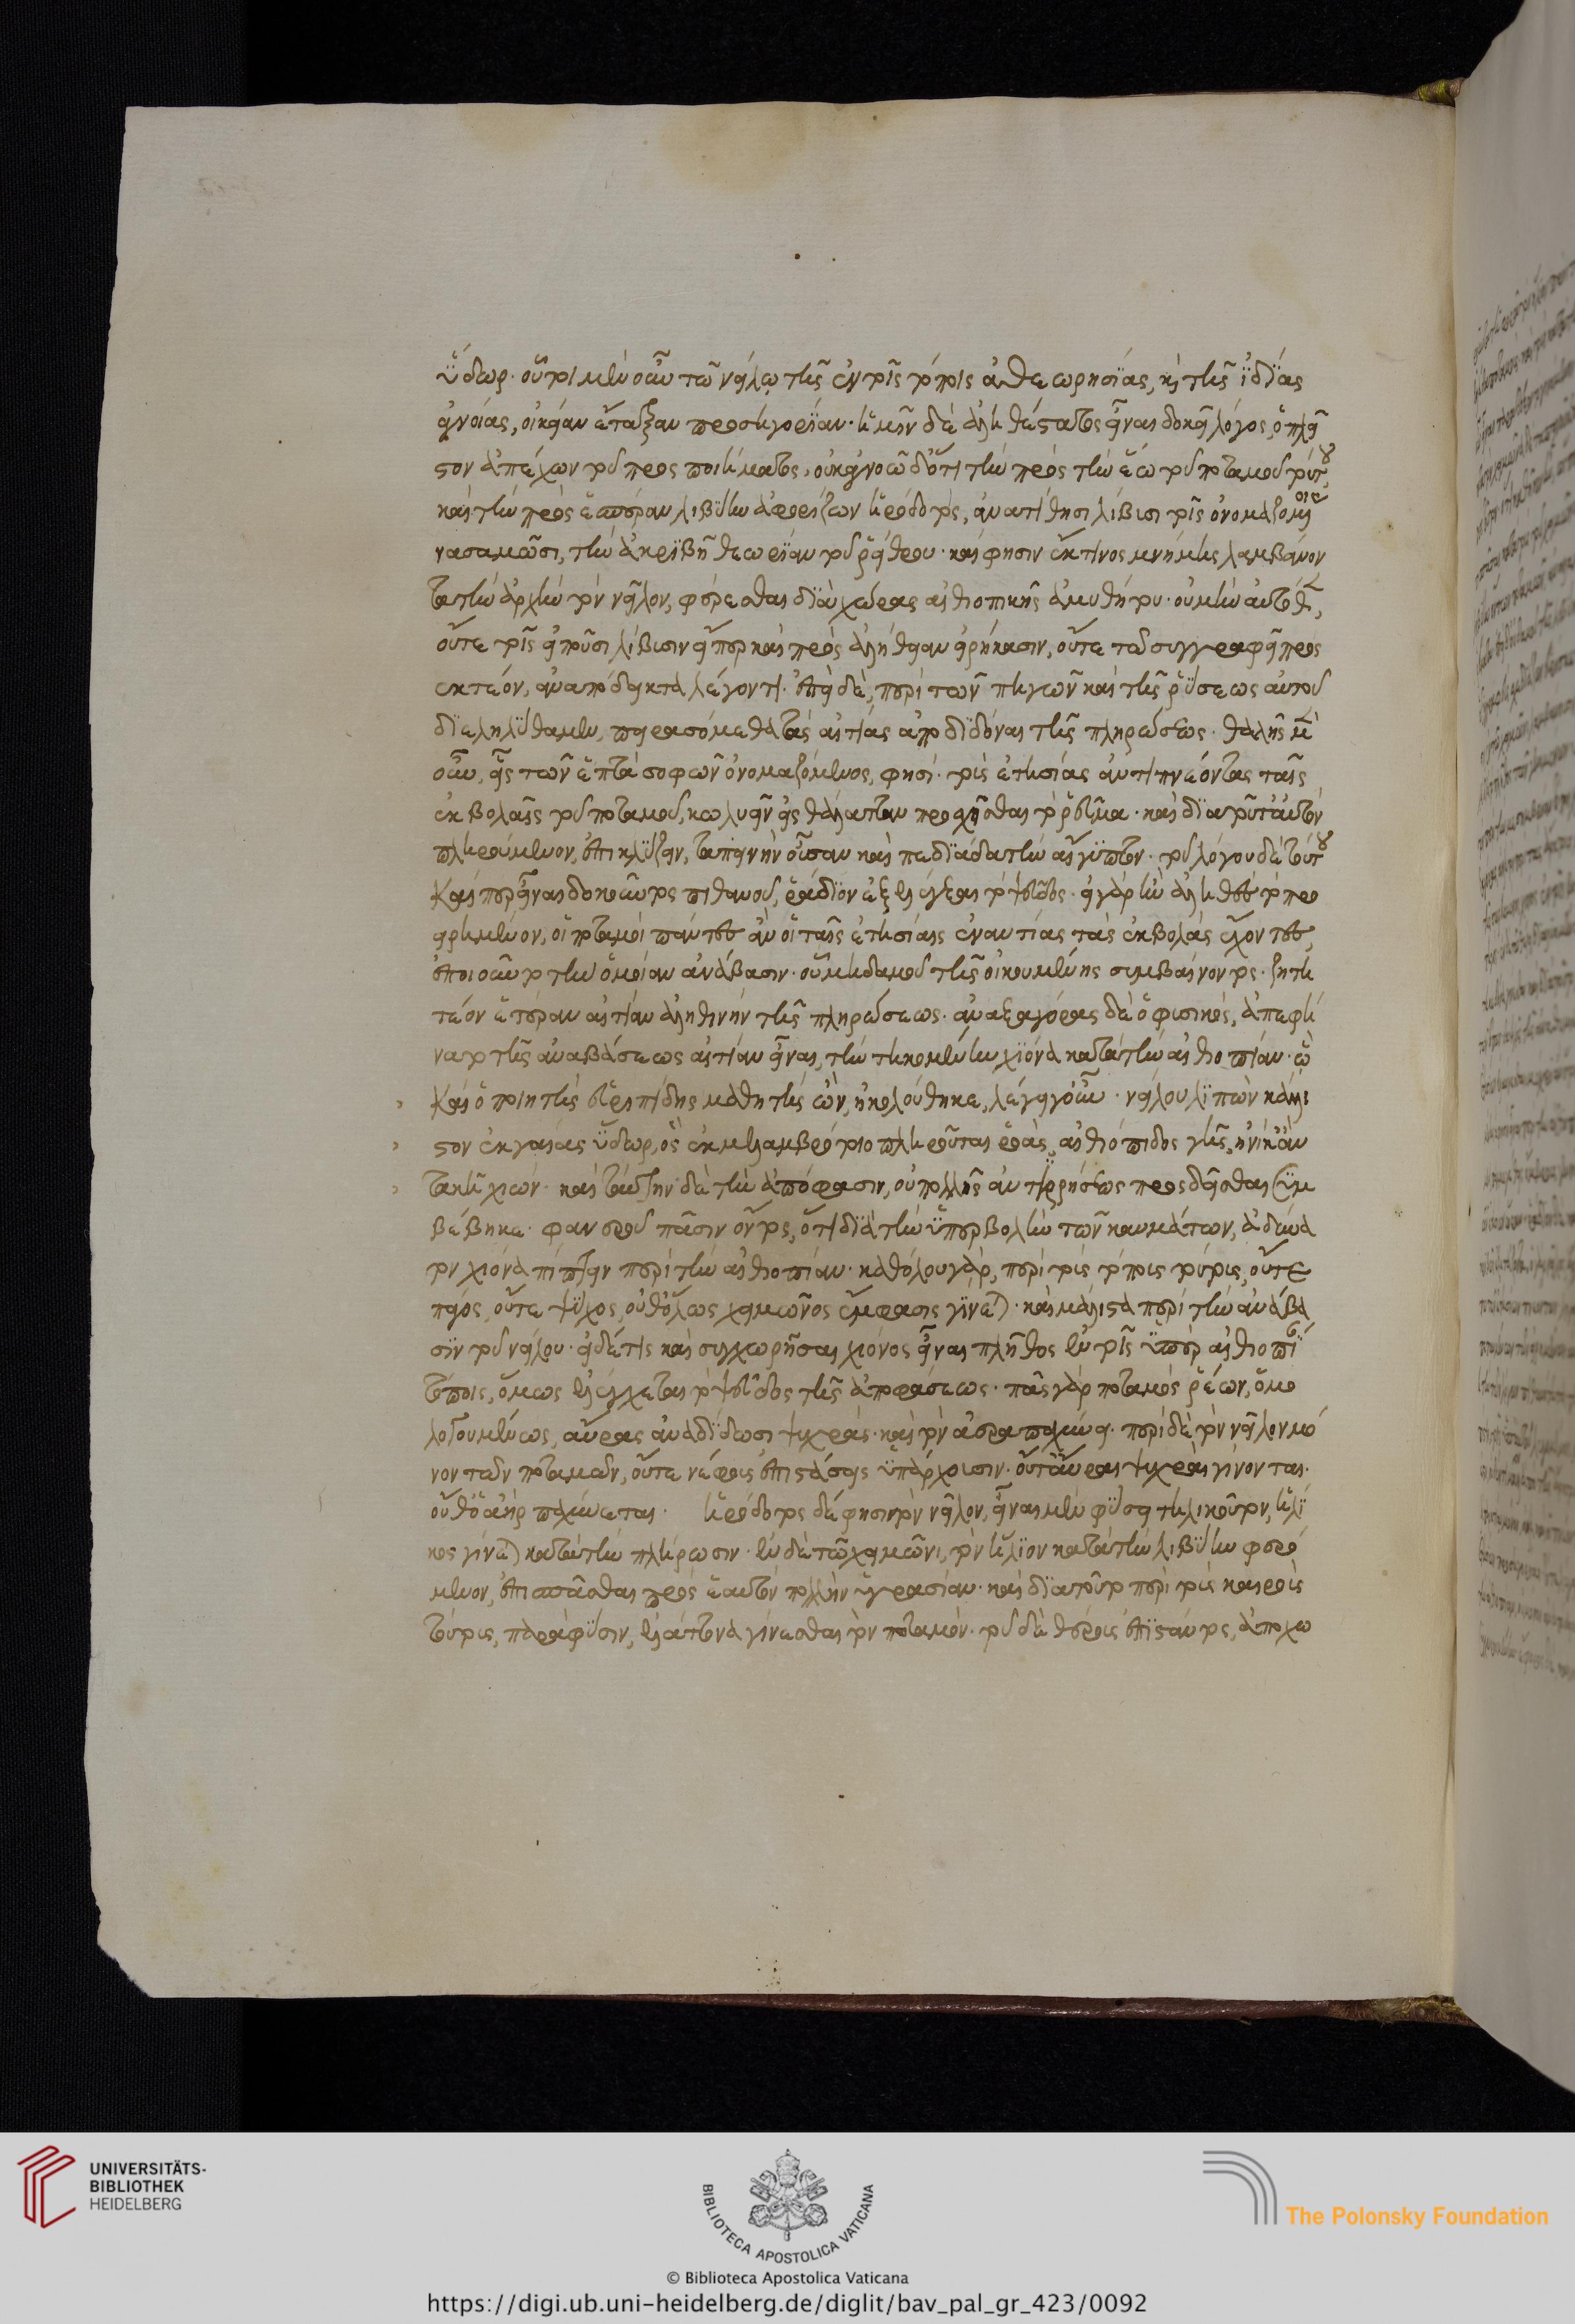 ὕδωρ· οὗτοι μὲν οὖν τῶ νείλω τῆς ἐν τοῖς τόποις ἀθεωρησίας, καὶ τῆς ἰδίας
ἀγνοίας, οἰκείαν ἔταξαν προσηγορίαν· ἡμῖν δὲ ἀληθέστατος εἶναι δοκεῖ λόγος, ὁ πλεῖ
στον ἀπέχων τοῦ προσποιήματος, οὐκ ἀγνοῶ δ' ὅτι τὴν πρὸς τὴν ἕω τοῦ ποταμοῦ τούτου,
καὶ τὴν πρὸς ἑσπέραν λιβύην ἀφορίζων ἡρόδοτος, ἀνατίθησι λίβυσι τοῖς ὀνομαζομένοις
νασαμῶσι, τὴν ἀκριβῆ θεωρίαν τοῦ ῥείθρου· καί φησιν ἔκ τινος μνήμης λαμβάνον
τα τὴν ἀρχὴν τὸν νεῖλον, φέρεσθαι διὰ χώρας αἰθιοπικῆς ἀμυθήτου· οὐ μὴν αὐτόθεν,
οὔτε τοῖς εἰποῦσι λίβυσιν εἴπερ καὶ πρὸς ἀλήθειαν εἰρήκασιν, οὔτε τῶ συγγραφεῖ προσ
εκτέον, ἀναπόδεικτα λέγοντι· ἐπεὶ δὲ, περὶ τῶν πηγῶν καὶ τῆς ῥύσεως αὐτοῦ
διεληλύθαμεν, πειρασόμεθα τὰς αἰτίας ἀποδιδόναι τῆς πληρώσεως· θαλῆς μὲν
οὖν, εἷς τῶν ἑπτὰ σοφῶν ὀνομαζόμενος, φησί· τοὺς ἐτησίας ἀντιπνέοντας ταῖς
ἐκβολαῖς τοῦ ποταμοῦ, κωλύειν εἰς θάλατταν προχεῖσθαι τὸ ῥεῦμα· καὶ διὰ τοῦτ' αὐτὸν
πληρούμενον, ἐπικλύζειν, ταπεινὴν οὖσαν καὶ πεδιάδα τὴν αἴγυπτον· τοῦ λόγου δὲ τούτου
καίπερ εἶναι δοκοῦντος πιθανοῦ, ῥάδιον ἐξελέγξαι τὸ ψεῦδος· εἰ γὰρ ἦν ἀληθὲς τὸ προ
ειρημένον, οἱ ποταμοὶ πάντες ἂν οἱ ταῖς ἐτησίαις ἐναντίας τὰς ἐκβολὰς ἔχοντες,
ἐποιοῦντο τὴν ὁμοίαν ἀνάβασιν· οὗ μηδαμοῦ τῆς οἰκουμένης συμβαίνοντος· ζητη
τέον ἑτέραν αἰτίαν ἀληθινὴν τῆς πληρώσεως· ἀναξαγόρας δὲ ὁ φυσικὸς, ἀπεφή
νατο τῆς ἀναβάσεως αἰτίαν εἶναι, τὴν τηκομένην χιόνα κατὰ τὴν αἰθιοπίαν· ὧ
καὶ ὁ ποιητὴς εὐριπίδης μαθητὴς ὢν, ἠκολούθηκε, λέγει γοῦν· νείλου λιπὼν κάλλι
στον ἐκ γαίας ὕδωρ, ὃς ἐκ μελαμβρότοιο πληροῦται ῥοὰς, αἰθιόπιδος γῆς, ἡνίκ' ἂν
τακῆ χιών· καὶ ταύτην δὲ τὴν ἀπόφασιν, οὐ πολλῆς ἀντιρρήσεως προσδεῖσθαι συμ
βέβηκε· φανεροῦ πᾶσιν ὄντος, ὅτι διὰ τὴν ὑπερβολὴν τῶν καυμάτων, ἀδύνα
τον χιόνα πίπτειν περὶ τὴν αἰθιοπίαν· καθόλου γὰρ, περὶ τοὺς τόπους τούτους, οὔτε
πάγος, οὔτε ψῦχος, οὐθ' ὅλως χειμῶνος ἔμφασις γίνεται· καὶ μάλιστα περὶ τὴν ἀνάβα
σιν τοῦ νείλου· εἰ δέ τις καὶ συγχωρῆσαι χιόνος εἶναι πλῆθος ἐν τοῖς ὑπὲρ αἰθιοπίαν
τόποις, ὅμως ἐλέγχεται τὸ ψεῦδος τῆς ἀποφάσεως· πᾶς γὰρ ποταμὸς ῥέων, ὁμο
λογουμένως, αὔρας ἀναδίδωσι ψυχράς· καὶ τὸν ἀέρα παχύνει· περὶ δὲ τὸν νεῖλον μό
νον τῶν ποταμῶν, οὔτε νέφους ἐπιστάσεις ὑπάρχουσιν· οὔτ' αὖραι ψυχραὶ γίνονται·
οὔθ' ὁ ἀὴρ παχύνεται· ἡρόδοτος δέ φησιν τὸν νεῖλον, εἶναι μὲν φύσει τηλικοῦτον, ἡλί
κος γίνεται κατὰ τὴν πλήρωσιν· ἐν δὲ τῶ χειμῶνι, τὸν ἥλιον κατὰ τὴν λιβύην φερό
μενον, ἐπισπᾶσθαι πρὸς ἑαυτὸν πολλὴν ὑγρασίαν· καὶ διὰ τοῦτο περὶ τοὺς καιροὺς
τούτους, παρὰ φύσιν, ἐλάττονα γίνεσθαι τὸν ποταμόν· τοῦ δὲ θέρους ἐπιστάντος, ἀποχω
UNIVERSITÄTS-
BIBLIOTHEK
HEIDELBERG
BIBLIOTECA APOSTOLICA VATICANA
The Polonsky Foundation
© Biblioteca Apostolica Vaticana
https://digi.ub.uni-heidelberg.de/diglit/bav_pal_gr_423/0092